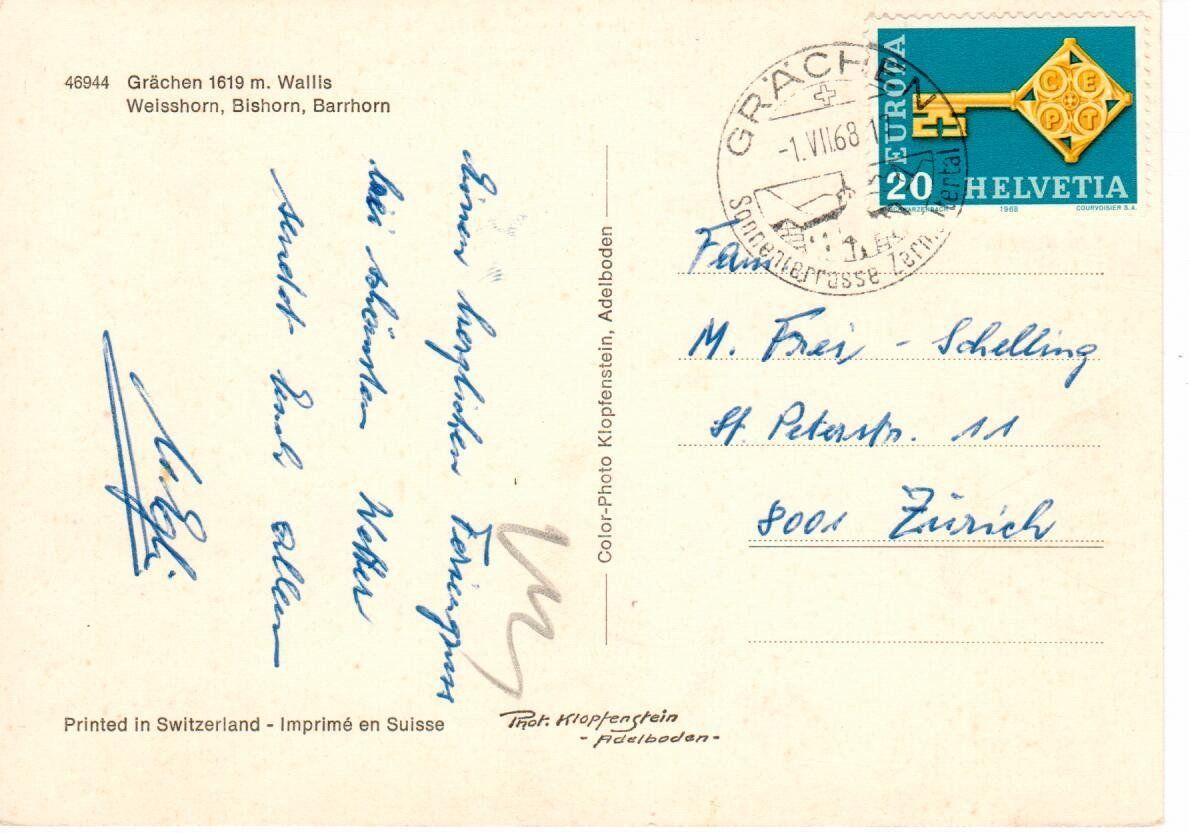 46944 Grächen 1619 m. Wallis
Weisshorn, Bishorn, Barrhorn
Einen herzlichen Feriengruss
bei schönsten Wetter
sendet Euch allen
M. Egli
Color-Photo Klopfenstein, Adelboden
Printed in Switzerland - Imprimé en Suisse
Phot. Klopfenstein
- Adelboden -
GRÄCHEN
-1.VII.68
Sonnenterrasse Zerm
EUROPA
CEPT
20 HELVETIA
1968 COURVOISIER S.A.
Fam
M. Frei - Schelling
St. Peterstr. 11
8001 Zürich